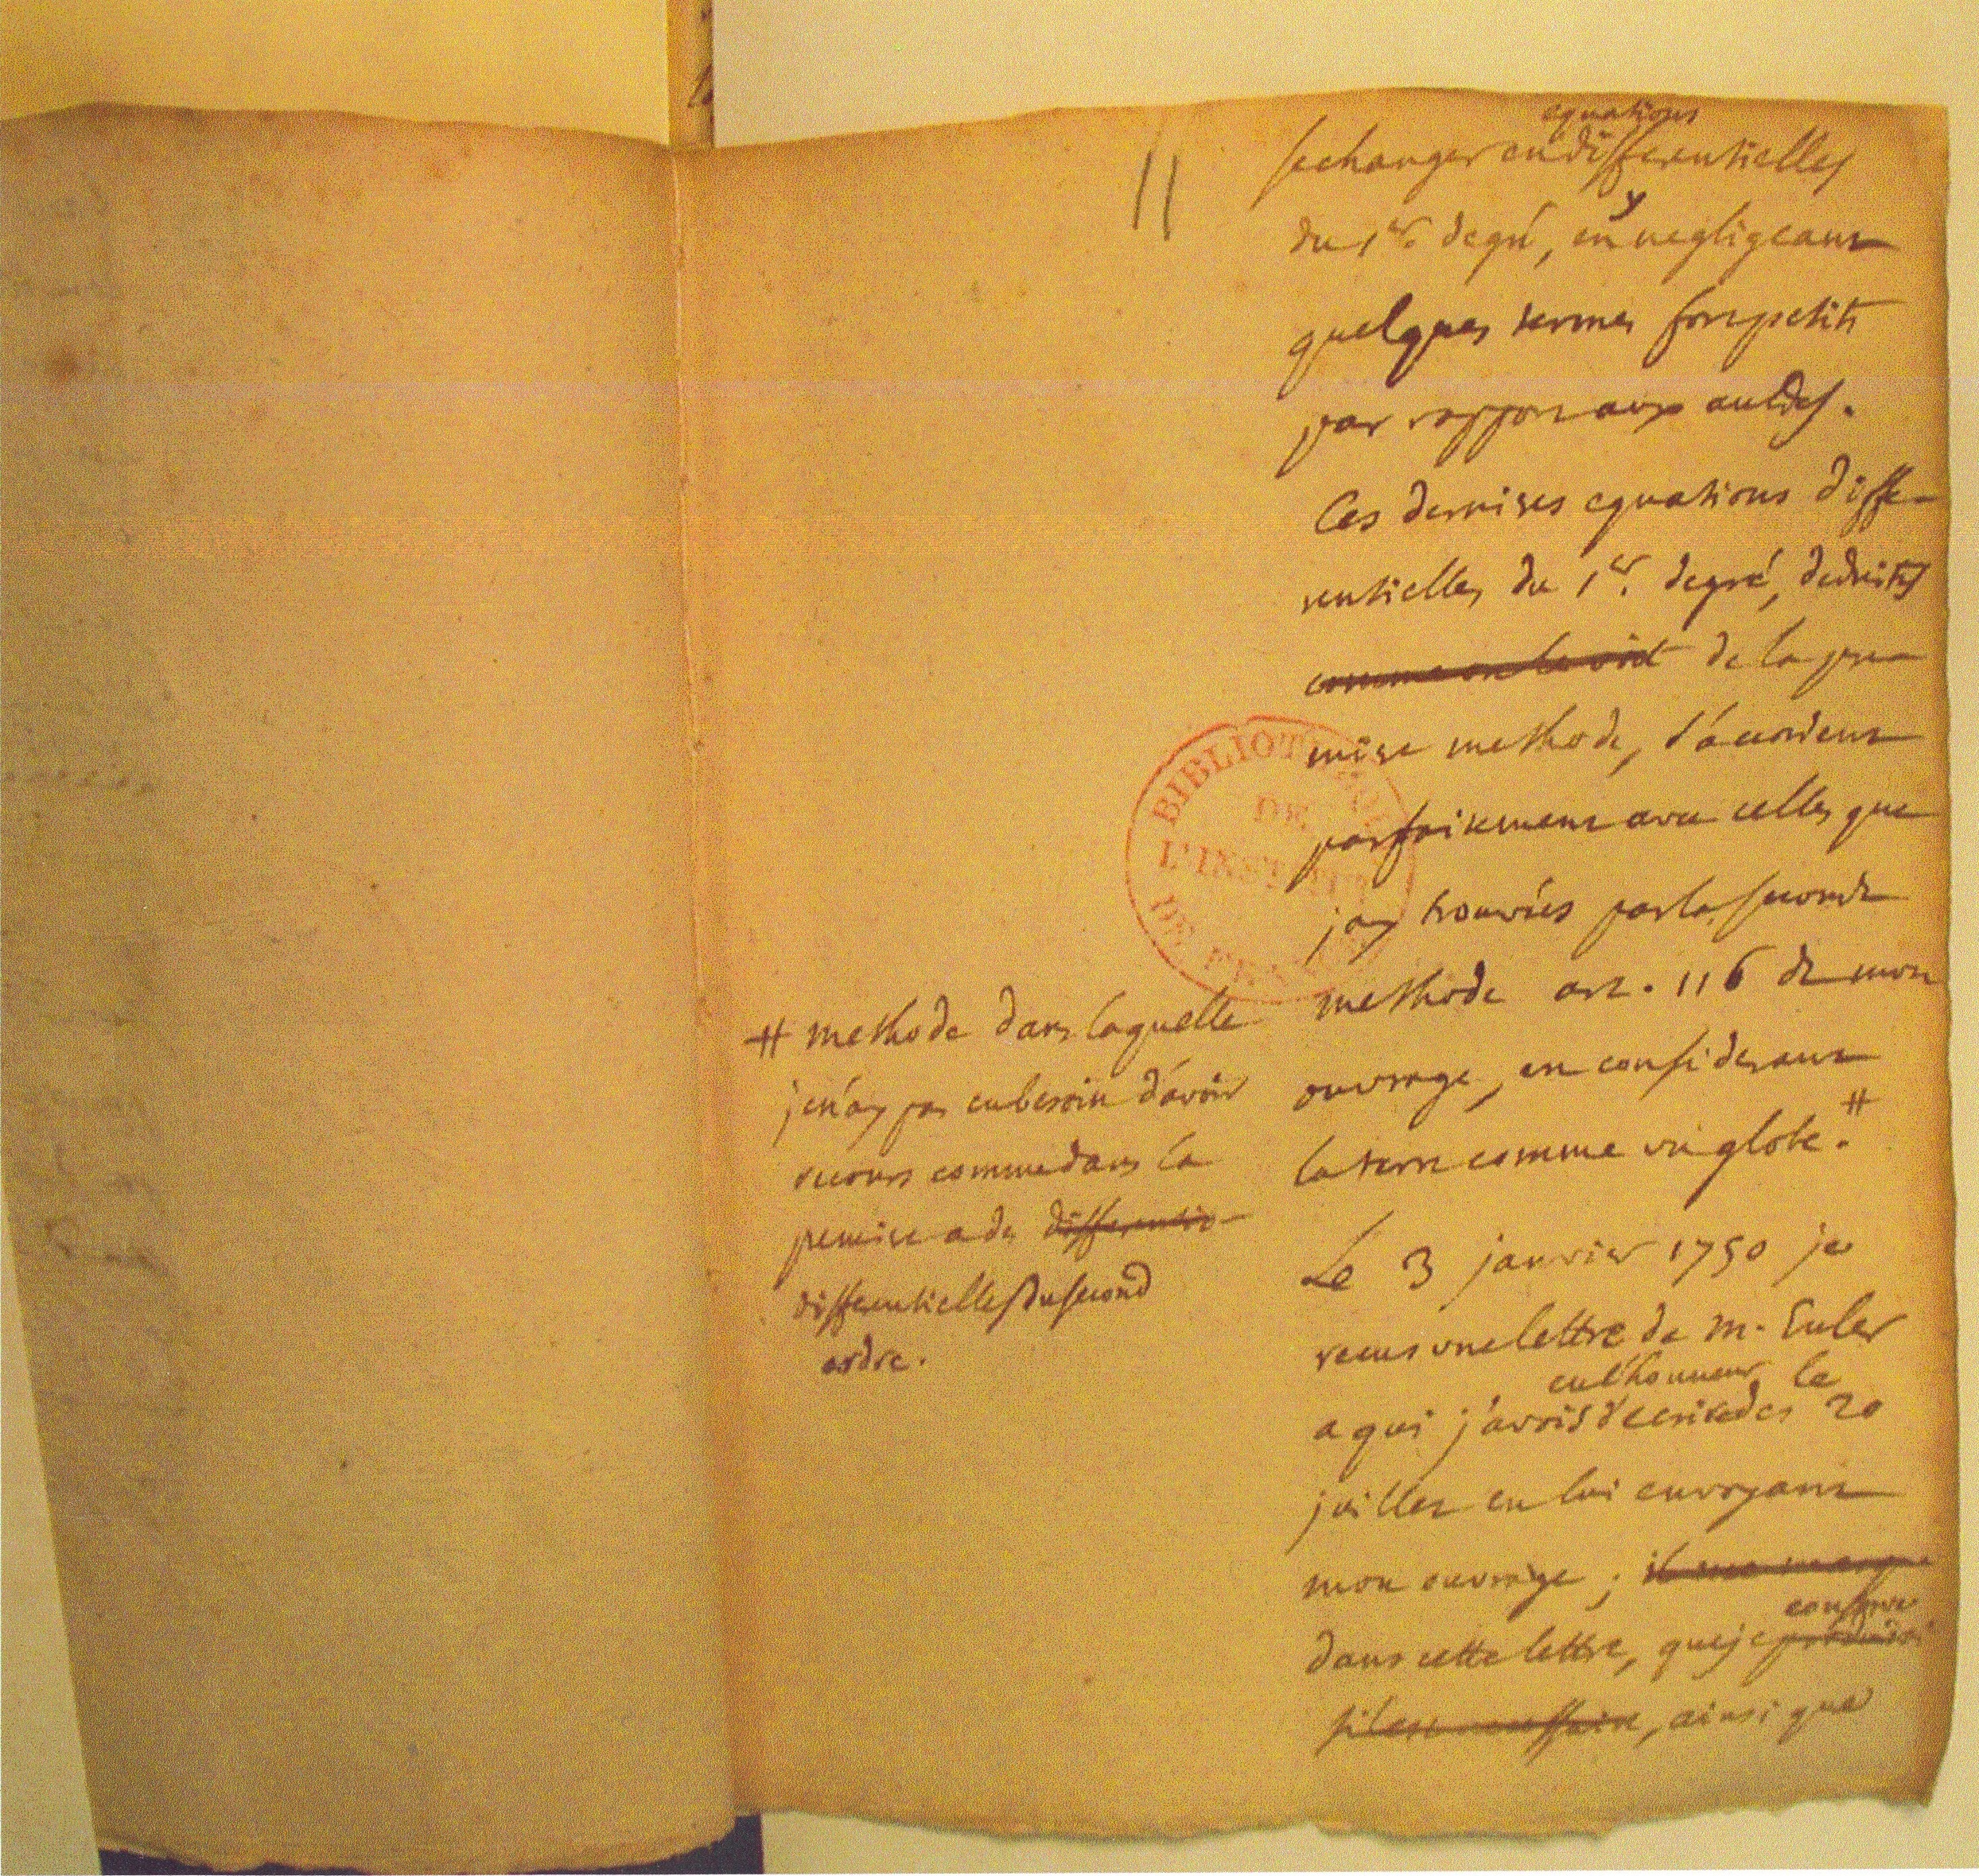 11
equations
se changer en differentielles
du 1er. degré, en y negligeant
quelques termes fort petits
par rapport aux autres.
Ces dernieres equations diffe-
rentielles du 1er. degré, deduites
comme on le voit de la pre-
miere methode, s'accordent
parfaitement avec celles que
j'ay trouvées par la seconde
methode art. 116 de mon
ouvrage, en considerant
la terre comme un globe. #
# methode dans laquelle
je n'ay pas eu besoin d'avoir
recours comme dans la
premiere a des differentio-
differentielles du second
ordre.
Le 3 janvier 1750 je
receus une lettre de M. Euler
eu l'honneur le
a qui j'avois d'ecrire des 20
juillet en lui envoyant
mon ouvrage ; il me marque
conserve
dans cette lettre, que je produirai
s'il est necessaire, ainsi que
BIBLIOTHEQUE
DE
L'INSTITUT
DE FRANCE